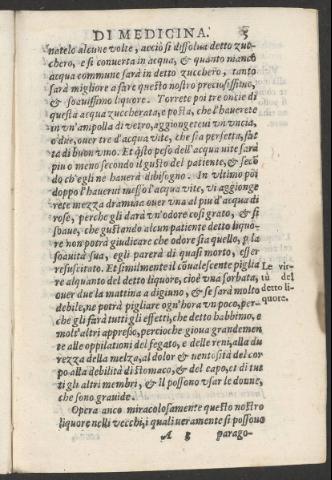 DI MEDICINA. 5
natelo alcune volte, acciò si dissolua detto zuc-
chero, e si conuerta in acqua, & quanto manco
acqua commune sarà in detto zucchero, tanto
sarà migliore a fare questo nostro preciosissimo,
& soauissimo liquore. Torrete poi tre oncie di
questa acqua zuccherata, e posta, che l'hauerete
in vn'ampolla di vetro, aggiongeteui vn'vncia,
o due, ouer tre d'acqua vite, che sia perfetta, fat
ta di buon vino. Et q̃sto peso dell'acqua vite sarà
piu o meno secondo il gusto del patiente, & seco
do ch'egli ne hauerà dibisogno. In vltimo poi
doppo l'hauerui messo l'acqua vite, vi aggionge
rete mezza dramma ouer vna al piu d'acqua di
rose, perche gli darà vn'odore così grato, & sì
soaue, che gustando alcun patiente detto liquo-
re non potrà giudicare che odore sia quello, p̱ la
soauità sua, egli parerà di quasi morto, esser
resuscitato. Et similmente il cõualescente piglia
re alquanto del detto liquore, cioè vna sorbata,
ouer due la mattina a digiuno, & se sarà molto
debile, ne potrà pigliare ogn'hora vn poco, per-
che gli farà tutti gli effetti, che detto habbimo, e
molt'altri appresso, percioche gioua grandemen
te alle oppilationi del fegato, e delle reni, alla du
rezza della melza, al dolor & ventosità del cor
po alla debilità di stomaco, & del capo, et di tut
ti gli altri membri, & il possono vsar le donne,
che sono grauide.
Opera anco miracolosamente questo nostro
liquore nelli vecchi, i quali veramente si possono
Le vir-
tù del
detto li-
quore.
A 8 parago-